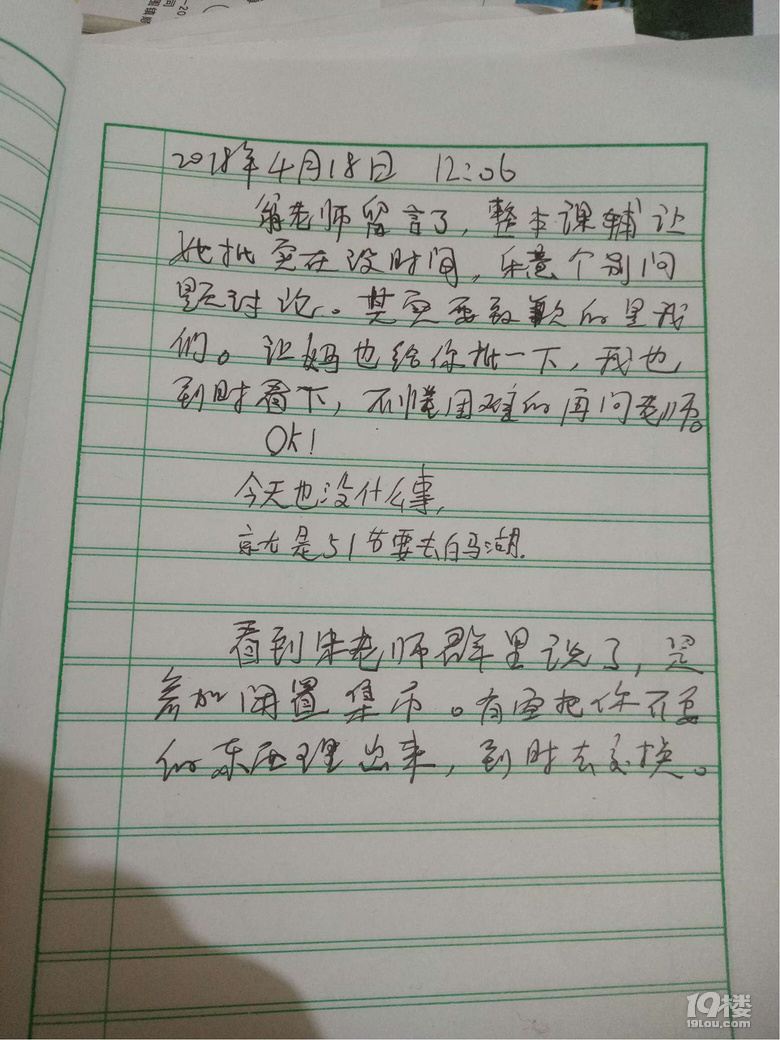 -20
2018年4月18日 12:06
翁老师留言了,整本课辅让
她批实在没时间,乐意个别问
题讨论。其实要致歉的是我
们。让妈也给你批一下,我也
到时看下,不懂困难的再问老师。
OK!
今天也没什么事,
就是51节要去白马湖.
看到朱老师群里说了,是
参加闲置集市。有空把你不要
的东西理出来,到时去交换。
19楼
19lou.com